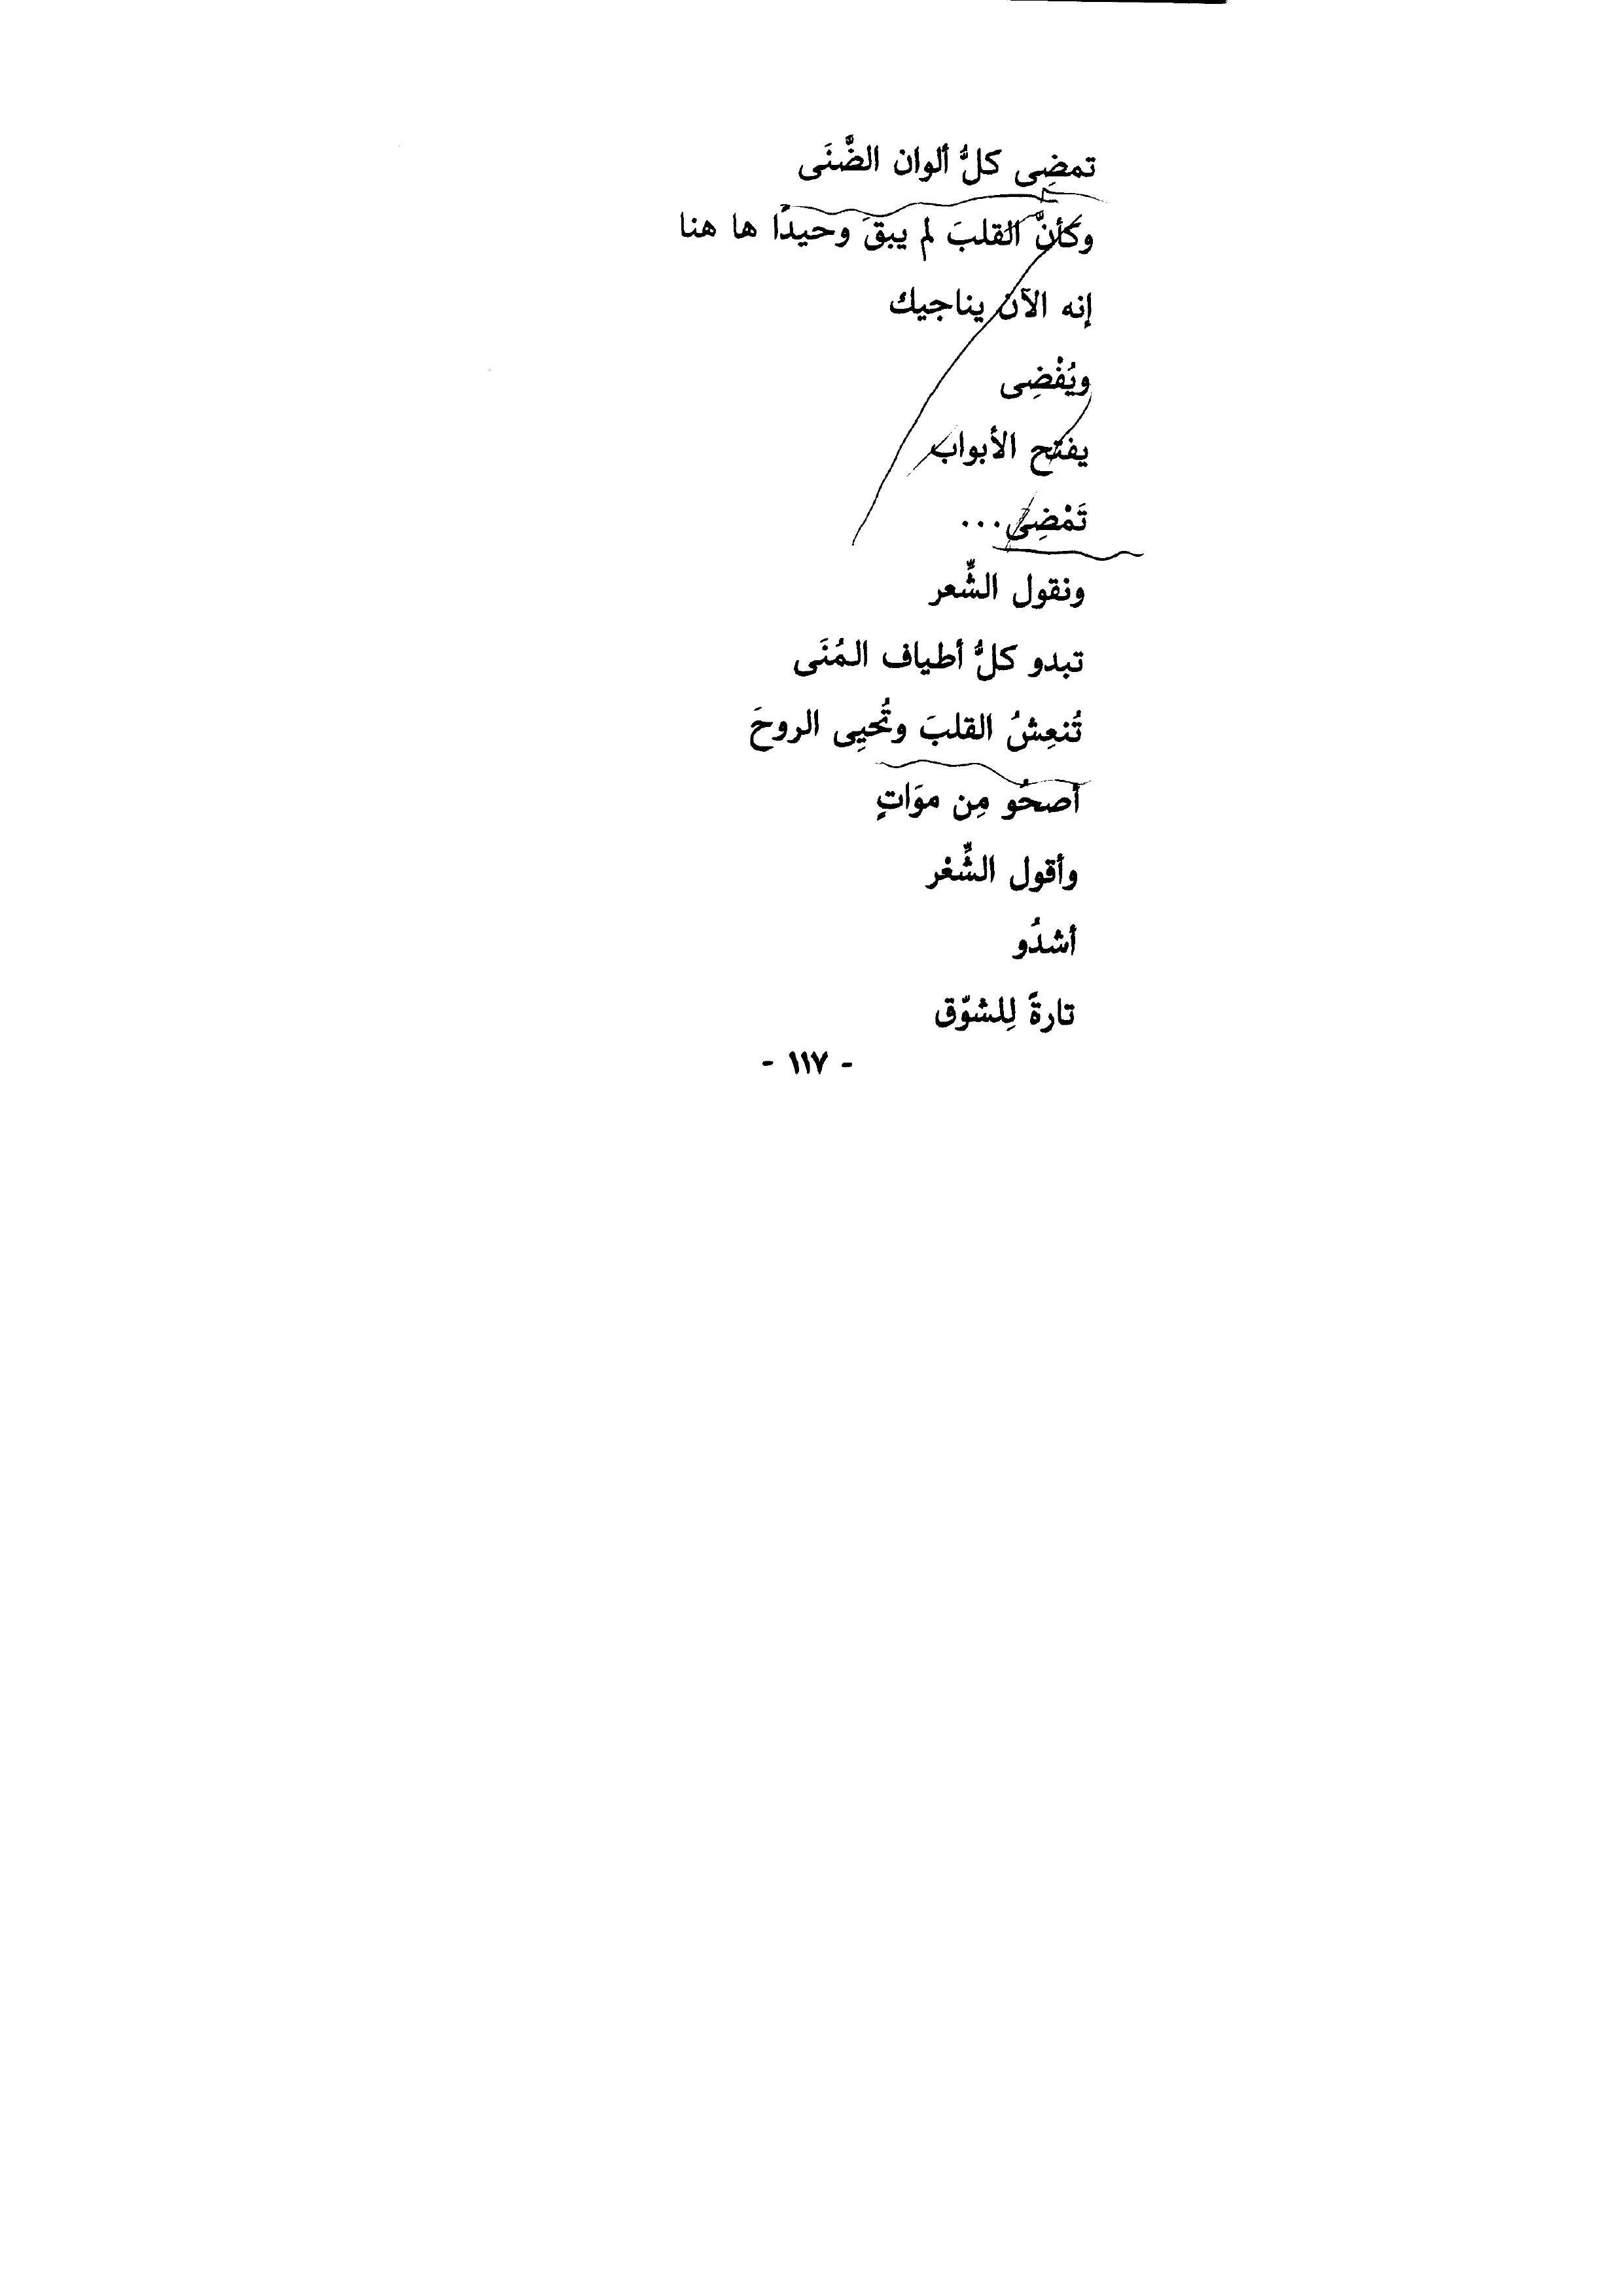 تمضِى كلُّ ألوان الضَّنَى
وكأنَّ القلبَ لم يبقَ وحيدًا ها هنا
إنه الآن يناجيك
ويُفْضِى
يفتح الأبواب
تَمْضِى...
ونقول الشِّعر
تبدو كلُّ أطياف المُنَى
تُنعِشُ القلبَ وتُحيِى الروحَ
أصحُو مِن موَاتٍ
وأقول الشِّعْر
أشدُو
تارةً لِلشوّق
- ١١٧ -